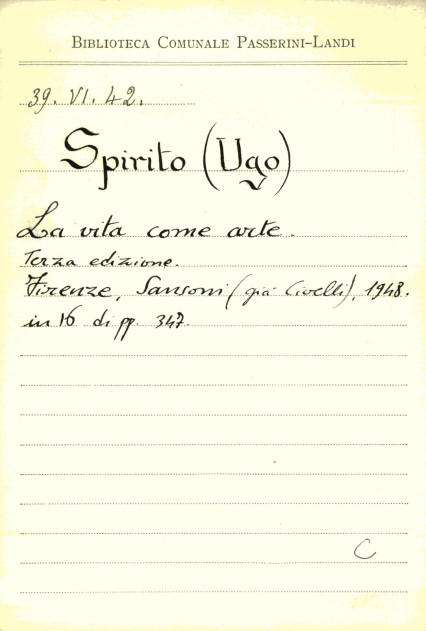 BIBLIOTECA COMUNALE PASSERINI-LANDI
39. VI. 42.
Spirito (Ugo)
La vita come arte.
Terza edizione.
Firenze, Sansoni (già Civelli), 1948.
in 16 di pp. 347.
C